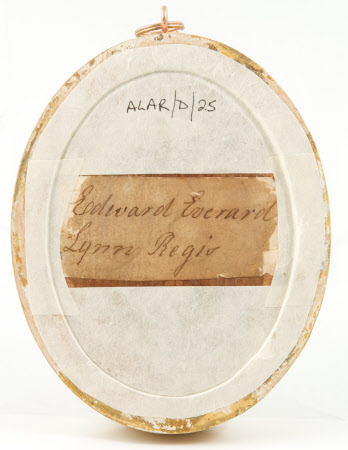 ALAR/D/25
Edward Everard
Lynn Regis